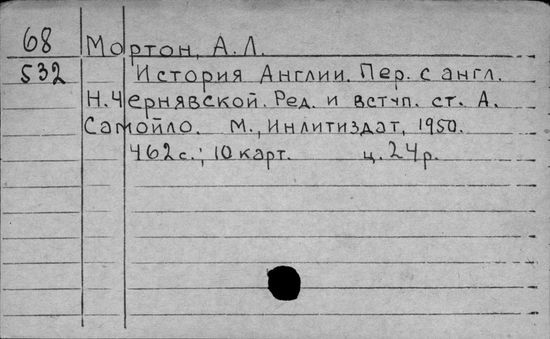 68 Мортон, А.Л.
532 История Англии. Пер. с англ.
Н. Чернявской. Ред. и вступ. ст. А.
Самойло. М., Инлитиздат, 1950.
462 с.; 10 карт. ц. 24 р.